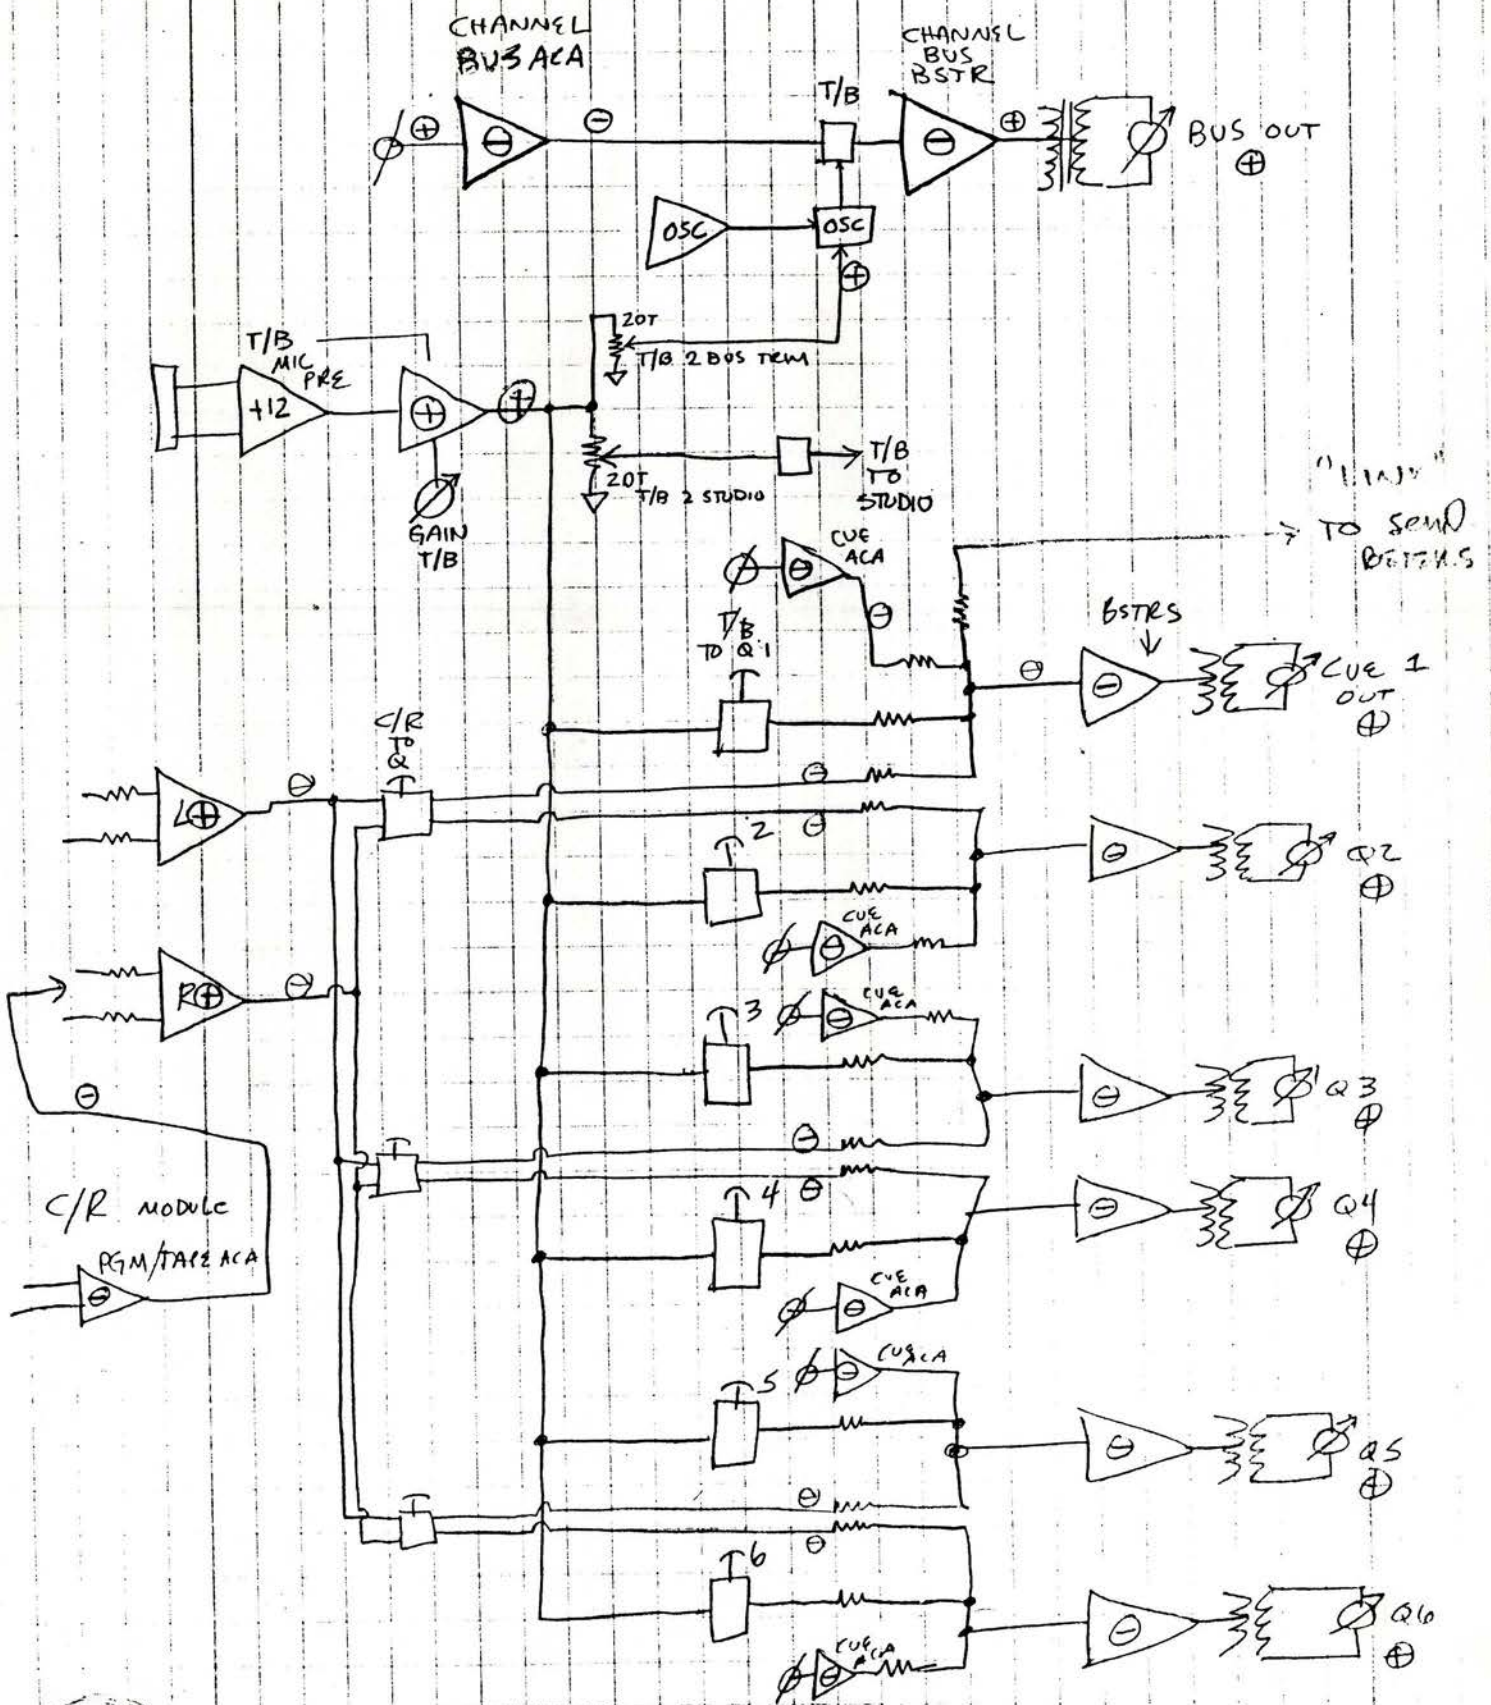 CHANNEL
BUS ACA
CHANNEL
BUS
BSTR
T/B
⊕
⊖
⊖
⊖
⊕
BUS OUT
⊕
OSC
OSC
⊕
20T
T/B 2 BUS TRIM
T/B
MIC
PRE
+12
⊕
⊕
GAIN
T/B
20T
T/B 2 STUDIO
T/B
TO
STUDIO
TO SEND
CUE
ACA
⊖
⊖
T/B
TO Q 1
BSTRS
⊖
⊖
CUE 1
OUT
⊕
C/R
TO
Q
L⊕
⊖
⊖
⊖
2
⊖
Q2
⊕
CUE
ACA
⊖
R⊕
⊖
3
CUE
ACA
⊖
⊖
Q3
⊕
⊖
⊖
⊖
4
⊖
Q4
⊕
C/R MODULE
PGM/TAPE ACA
⊖
CUE
ACA
⊖
CUE ACA
⊖
5
⊖
Q5
⊕
⊖
⊖
6
⊖
Q6
⊕
CUE
ACA
⊖